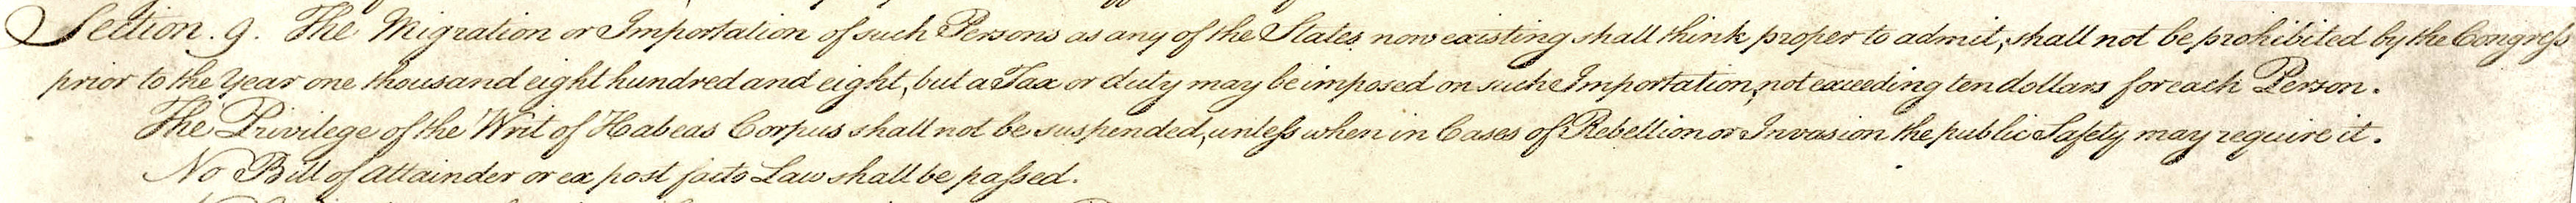 Section. 9. The Migration or Importation of such Persons as any of the States now existing shall think proper to admit, shall not be prohibited by the Congreſs
prior to the Year one thousand eight hundred and eight, but a Tax or duty may be imposed on such Importation, not exceeding ten dollars for each Person.
The Privilege of the Writ of Habeas Corpus shall not be suspended, unleſs when in Cases of Rebellion or Invasion the public Safety may require it.
No Bill of Attainder or ex post facto Law shall be paſsed.